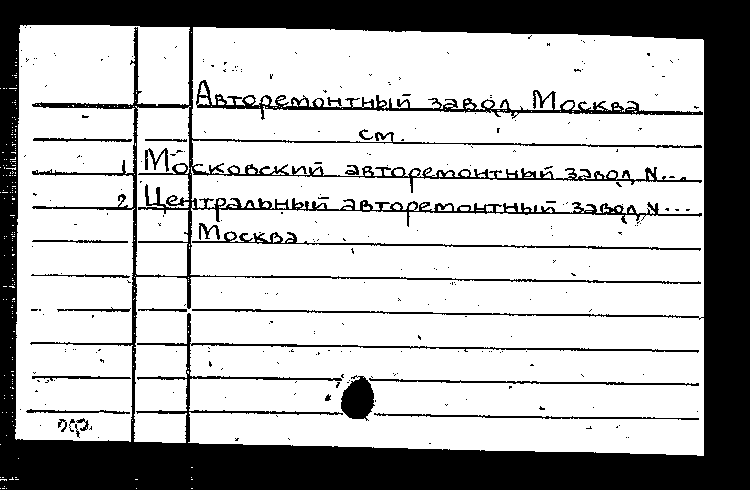 Авторемонтный завод, Москва
см.
1. Московский авторемонтный завод N...
2. Центральный авторемонтный завод N...
Москва.